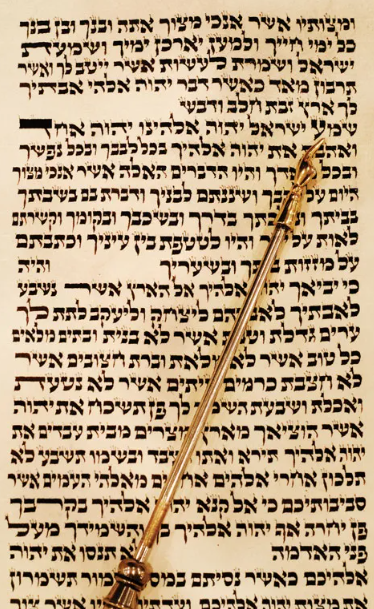 ומצותיו אשר אנכי מצוך אתה ובנך ובן בנך
כל ימי חייך ולמען יארכן ימיך ושמעת
ישראל ושמרת לעשות אשר ייטב לך ואשר
תרבון מאד כאשר דבר יהוה אלהי אבתיך
לך ארץ זבת חלב ודבש
שמע ישראל יהוה אלהינו יהוה אחד
ואהבת את יהוה אלהיך בכל לבבך ובכל נפשך
ובכל והיו הדברים האלה אשר אנכי מצוך
היום על ושננתם לבניך ודברת בם בשבתך
בביתך בדרך ובשכבך ובקומך וקשרתם
לאות על והיו לטטפת בין עיניך וכתבתם
על מזוזות ביתך ובשעריך והיה
כי יביאך יהוה אלהיך אל הארץ אשר נשבע
לאבתיך לאברהם ליצחק וליעקב לתת לך
ערים גדלת אשר לא בנית ובתים מלאים
כל טוב אשר לא מלאת וברת חצובים אשר
לא חצבת כרמים וזיתים אשר לא נטעת
ואכלת ושבעת השמר לך פן תשכח את יהוה
אשר הוציאך מארץ מצרים מבית עבדים את
יהוה אלהיך תירא ואתו תעבד ובשמו תשבע לא
תלכון אחרי אלהים אחרים מאלהי העמים אשר
סביבותיכם כי אל קנא יהוה אלהיך בקרבך
פן יחרה אף יהוה אלהיך בך והשמידך מעל
פני האדמה לא תנסו את יהוה
אלהיכם כאשר נסיתם במסה שמור תשמרון